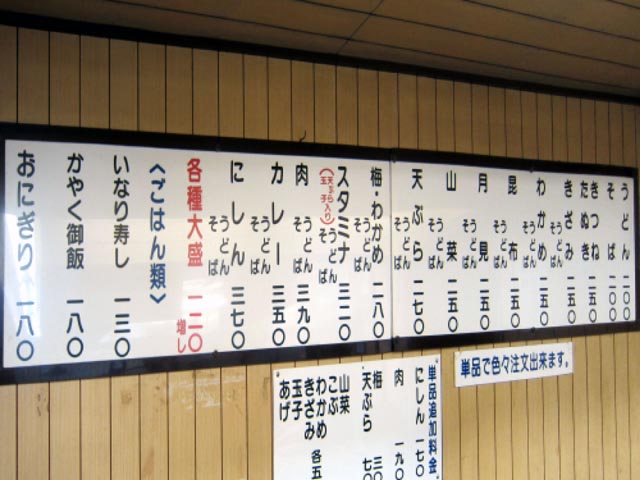 うどん 一〇〇
そば 一〇〇
きつね
たぬき 一五〇
きざみ 一五〇
わかめ うどん そば 一五〇
昆布 うどん そば 一五〇
月見 うどん そば 一五〇
山菜 うどん そば 一五〇
天ぷら うどん そば 一七〇
梅・わかめ うどん そば 一八〇
スタミナ(天ぷら 玉子入り) うどん そば 三二〇
肉 うどん そば 三九〇
カレー うどん そば 三五〇
にしん うどん そば 三七〇
各種大盛 一二〇増し
〈ごはん類〉
いなり寿し 一三〇
かやく御飯 一八〇
おにぎり 一八〇
単品で色々注文出来ます。
単品追加料金
にしん 一七〇
肉 一九〇
梅 三〇
天ぷら 七〇
山菜
こぶ
わかめ
きざみ 各五
玉子
あげ